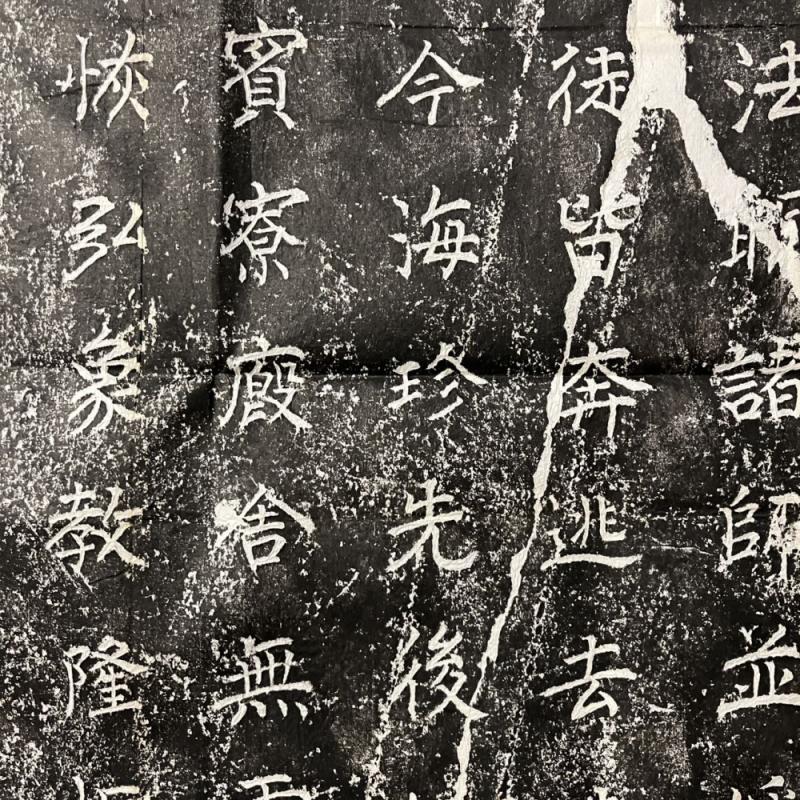 法顯諸師並
徒皆奔逃去
今海珍先後
賓寮廄舍無
恢弘象教隆